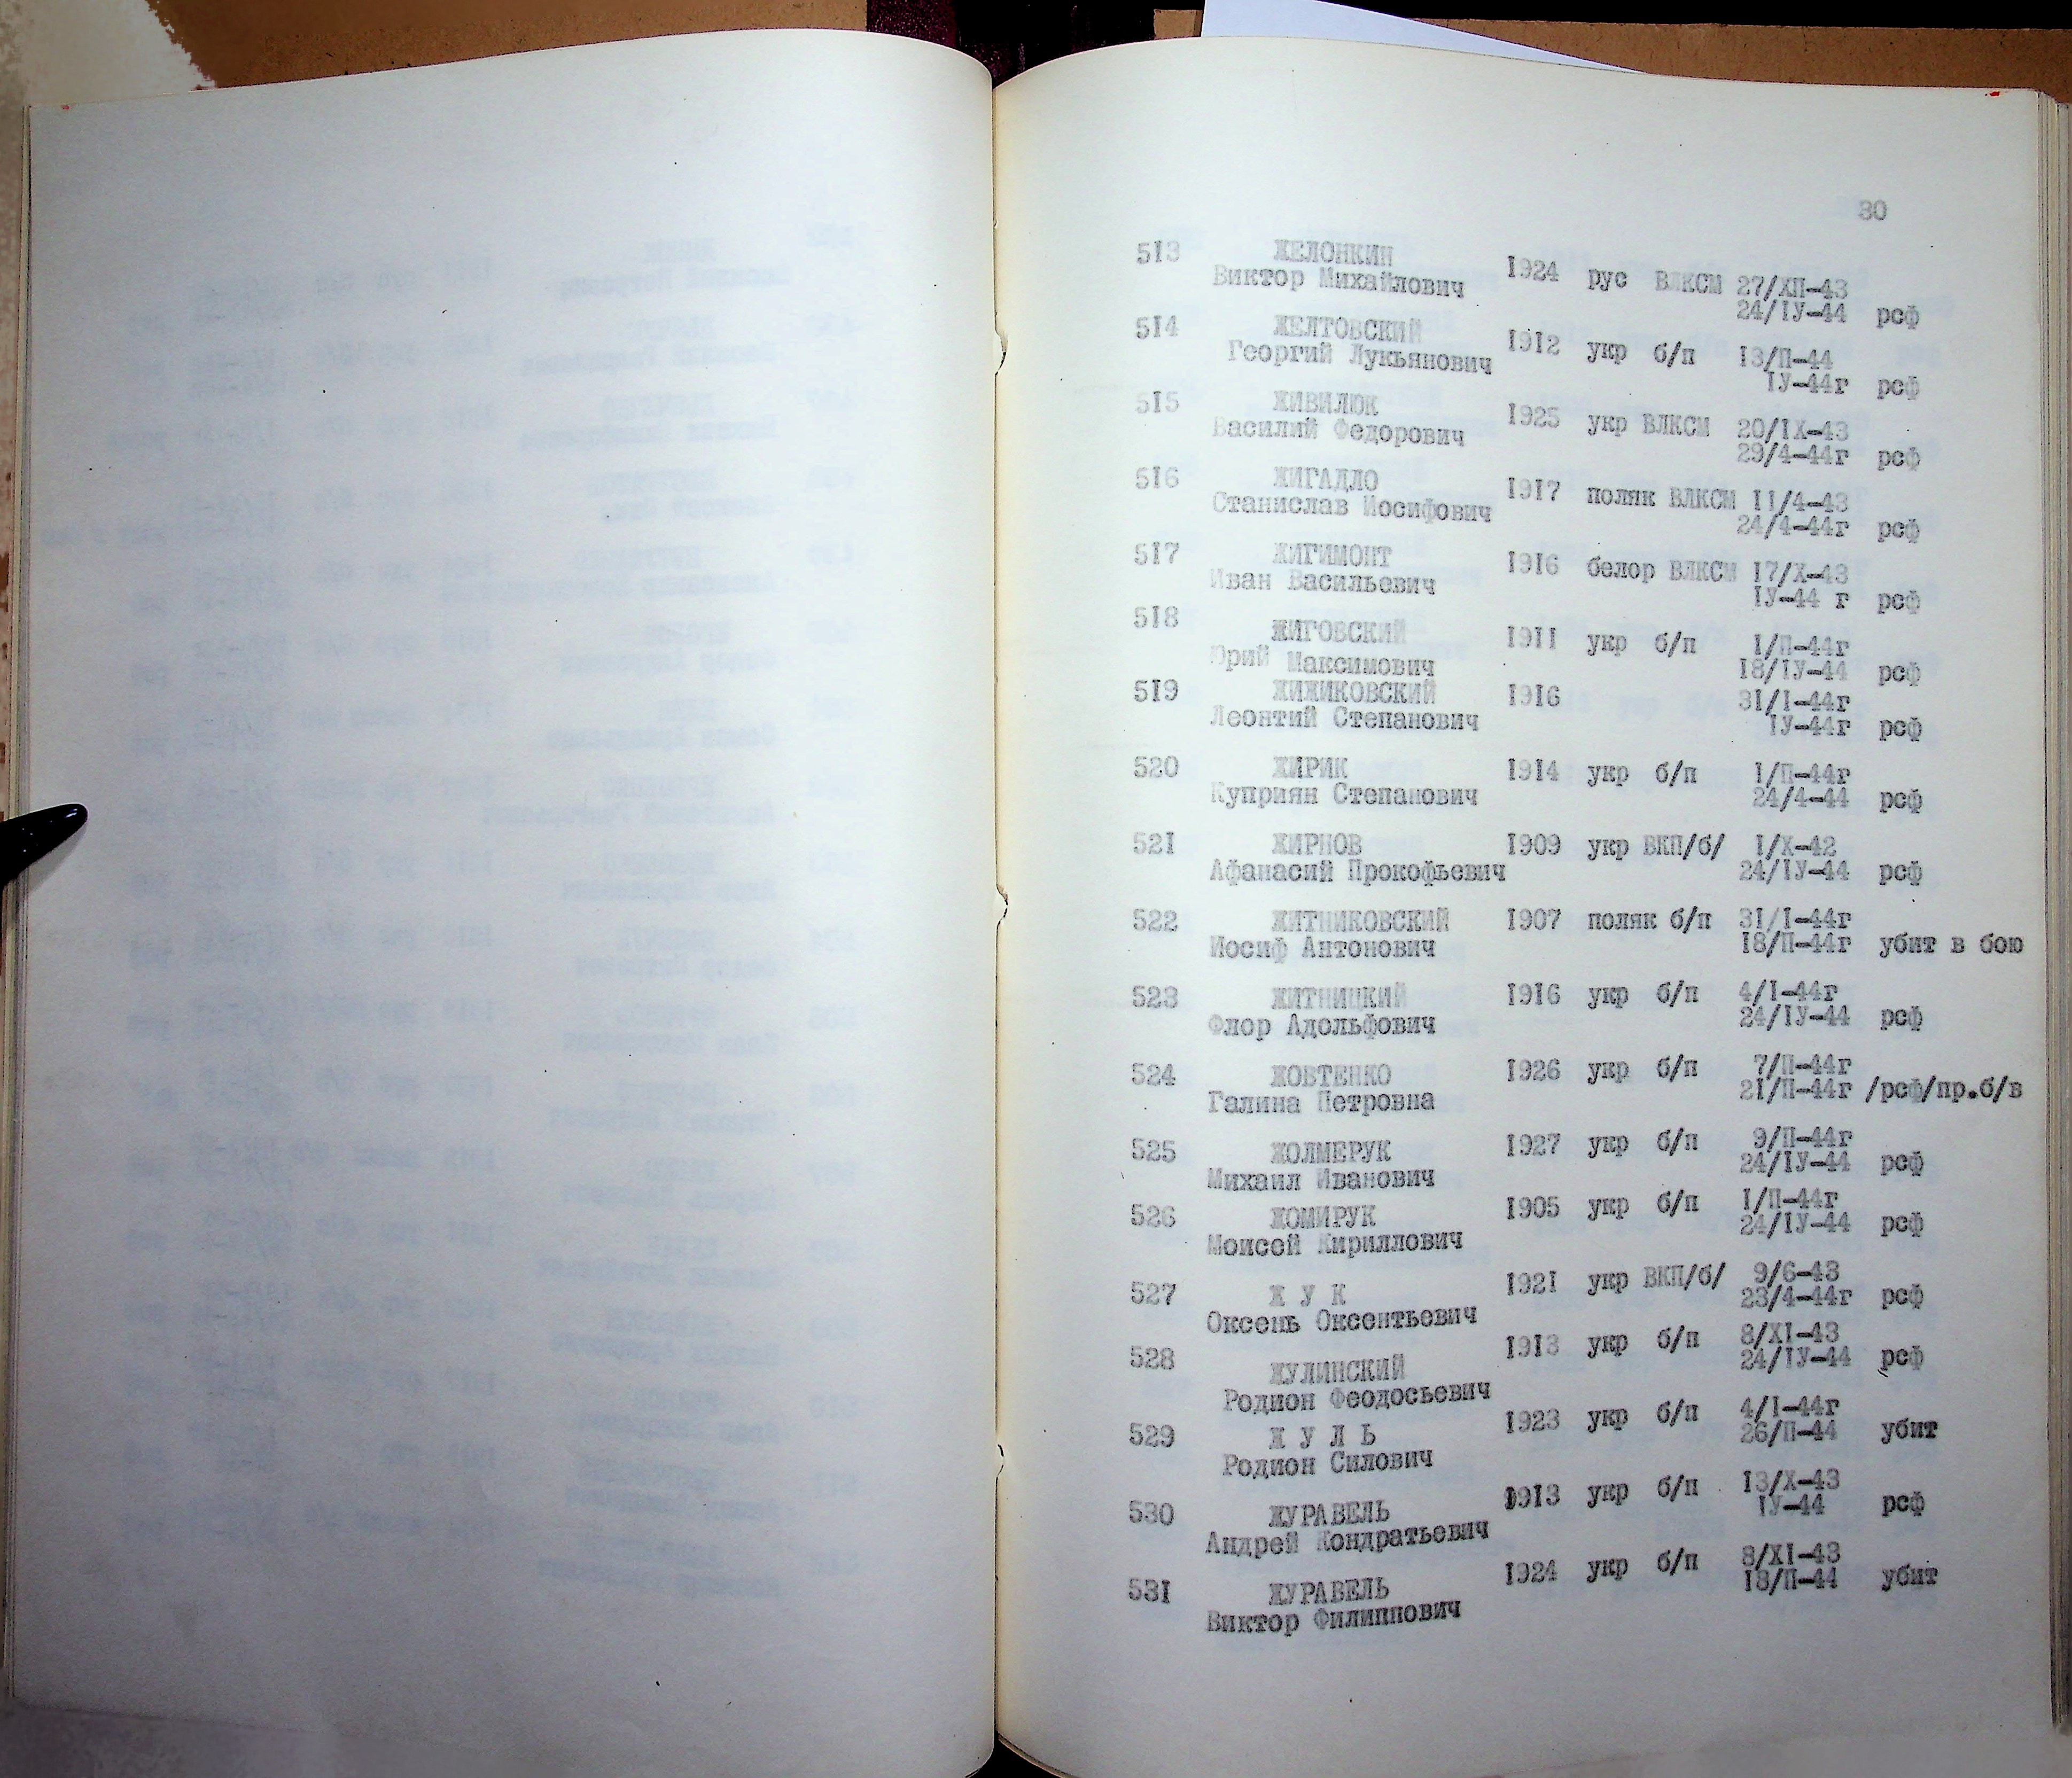 30
513 ЖЕЛОНКИН
Виктор Михайлович 1924 рус ВЛКСМ 27/ХП-43
24/IУ-44 рсф
514 ЖЕЛТОВСКИЙ
Георгий Лукьянович 1912 укр б/п 13/П-44
IУ-44г рсф
515 ЖИВИЛЮК
Василий Федорович 1925 укр ВЛКСМ 20/IХ-43
29/4-44г рсф
516 ЖИГАДЛО
Станислав Иосифович 1917 поляк ВЛКСМ 11/4-43
24/4-44г рсф
517 ЖИГИМОНТ
Иван Васильевич 1916 белор ВЛКСМ 17/Х-43
IУ-44 г рсф
518 ЖИГОВСКИЙ
Юрий Максимович 1911 укр б/п 1/П-44г
18/IУ-44 рсф
519 ЖИЖИКОВСКИЙ 1916 31/I-44г
Леонтий Степанович IУ-44г рсф
520 ЖИРИК 1914 укр б/п 1/П-44г
Куприян Степанович 24/4-44 рсф
521 ЖИРНОВ 1909 укр ВКП/б/ 1/Х-42
Афанасий Прокофьевич 24/IУ-44 рсф
522 ЖИТНИКОВСКИЙ 1907 поляк б/п 31/I-44г
Иосиф Антонович 18/П-44г убит в бою
523 ЖИТНИЦКИЙ 1916 укр б/п 4/I-44г
Флор Адольфович 24/IУ-44 рсф
524 ЖОВТЕНКО 1926 укр б/п 7/П-44г
Галина Петровна 21/П-44г /рсф/пр.б/в
525 ЖОЛМЕРУК 1927 укр б/п 9/П-44г
Михаил Иванович 24/IУ-44 рсф
526 ЖОМИРУК 1905 укр б/п 1/П-44г
Моисей Кириллович 24/IУ-44 рсф
527 Ж У К 1921 укр ВКП/б/ 9/6-43
Оксень Оксентьевич 23/4-44г рсф
528 ЖУЛИНСКИЙ 1913 укр б/п 8/ХI-43
Родион Феодосьевич 24/IУ-44 рсф
529 Ж У Л Ь 1923 укр б/п 4/I-44г
Родион Силович 26/П-44 убит
530 ЖУРАВЕЛЬ 1913 укр б/п 13/Х-43
Андрей Кондратьевич IУ-44 рсф
531 ЖУРАВЕЛЬ 1924 укр б/п 8/ХI-43
Виктор Филиппович 18/П-44 убит